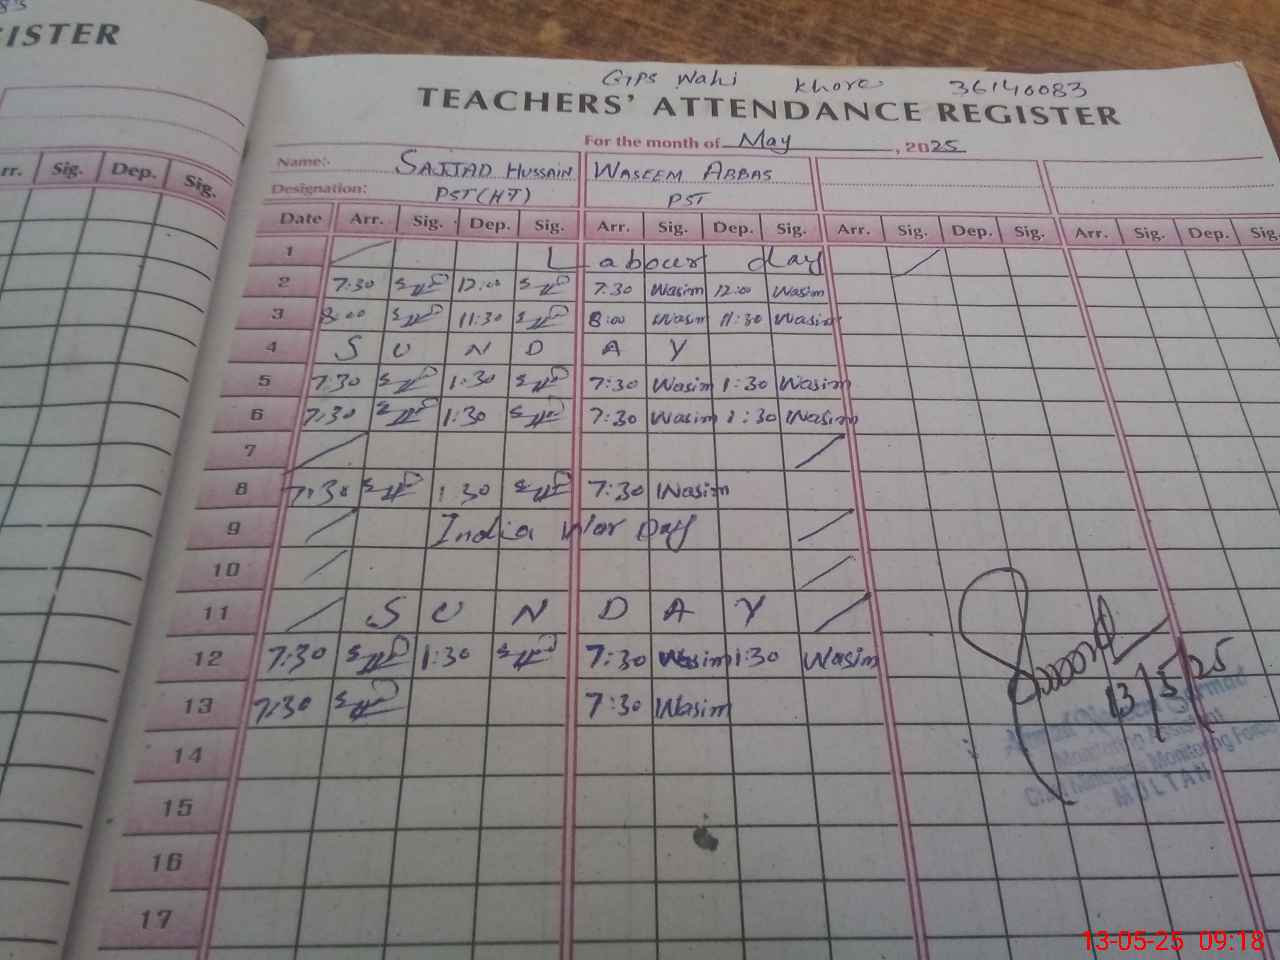 ISTER
GTPS Wahi Khore 36140083
TEACHERS' ATTENDANCE REGISTER
For the month of May, 2025
Name:- SAJJAD HUSSAIN WASEEM ABBAS
Designation: PST(HT) PST
rr. Sig. Dep. Sig.
Date Arr. Sig. Dep. Sig. Arr. Sig. Dep. Sig. Arr. Sig. Dep. Sig. Arr. Sig. Dep. Sig.
1 Labour day
2 7:30 12:00 7:30 Wasim 12:00 Wasim
3 8:00 11:30 8:00 Wasim 11:30 Wasim
4 S U N D A Y
5 7:30 1:30 7:30 Wasim 1:30 Wasim
6 7:30 1:30 7:30 Wasim 1:30 Wasim
7
8 7:30 1:30 7:30 Wasim
9 India War Day
10
11 S U N D A Y
12 7:30 1:30 7:30 Wasim 1:30 Wasim
13 7:30 7:30 Wasim
14
15
16
17
13/5/25
Monitoring Assistant
Chief Minister's Monitoring Force
MULTAN
13-05-25 09:18